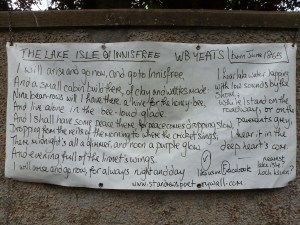 THE LAKE ISLE OF INNISFREE WB YEATS born June 1865
I will arise and go now, and go to Innisfree,
And a small cabin build there, of clay and wattles made:
Nine bean-rows will I have there, a hive for the honey-bee,
And live alone in the bee-loud glade.
And I shall have some peace there, for peace comes dropping slow,
Dropping from the veils of the morning to where the cricket sings;
There midnight's all a glimmer, and noon a purple glow,
And evening full of the linnet's wings.
I will arise and go now, for always night and day
I hear lake water lapping
with low sounds by the
shore;
While I stand on the
roadway, or on the
pavements grey,
I hear it in the
deep heart's core.
nearest
lake isle?
Loch Leven?
www.standrewspoetrywall.com